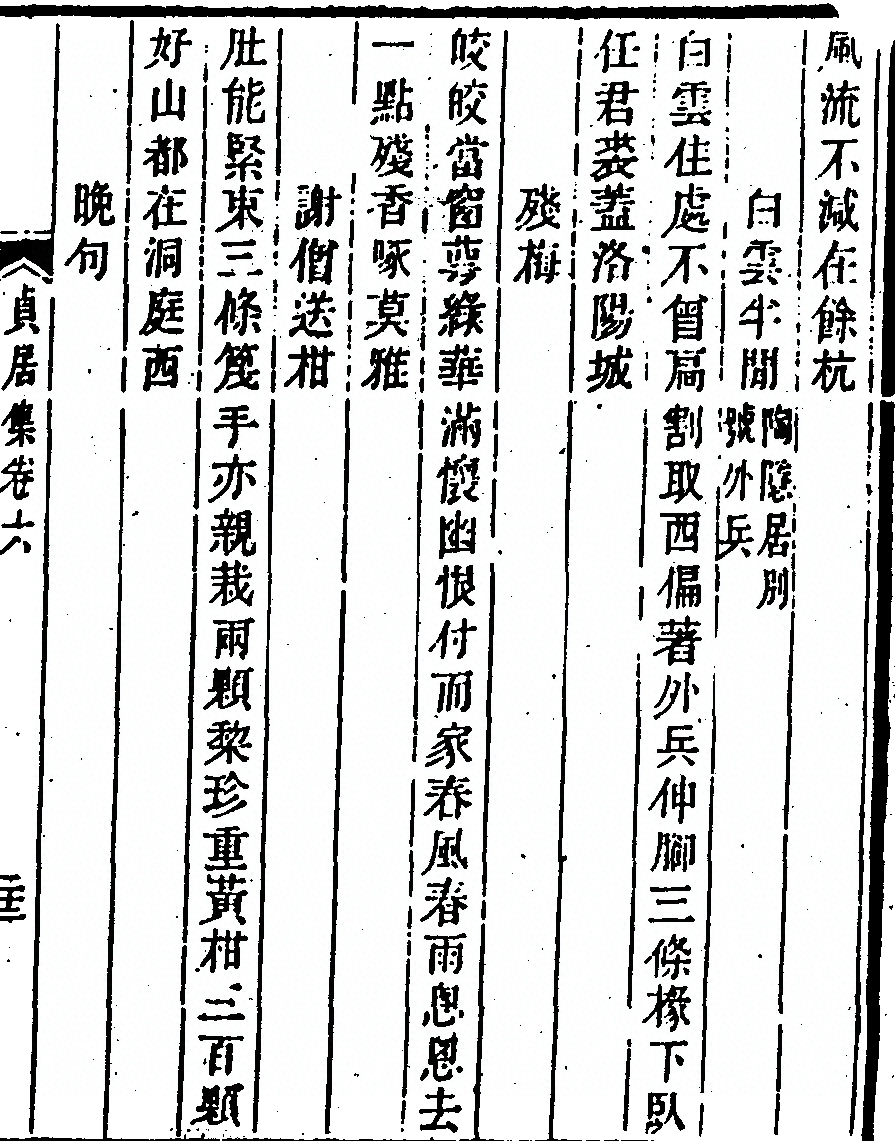 風流不減在餘杭
白雲半間陶隱居別號外兵
白雲住處不曾扃割取西偏著外兵伸腳三條椽下臥
任君裘蓋洛陽城
殘梅
皎皎當窗萼綠華滿懷幽恨付而家春風春雨悤悤去
一點殘香啄莫雅
謝僧送柑
肚能緊束三條篾手亦親栽兩顆棃珍重黃柑三百顆
好山都在洞庭西
晚句
貞居集卷六